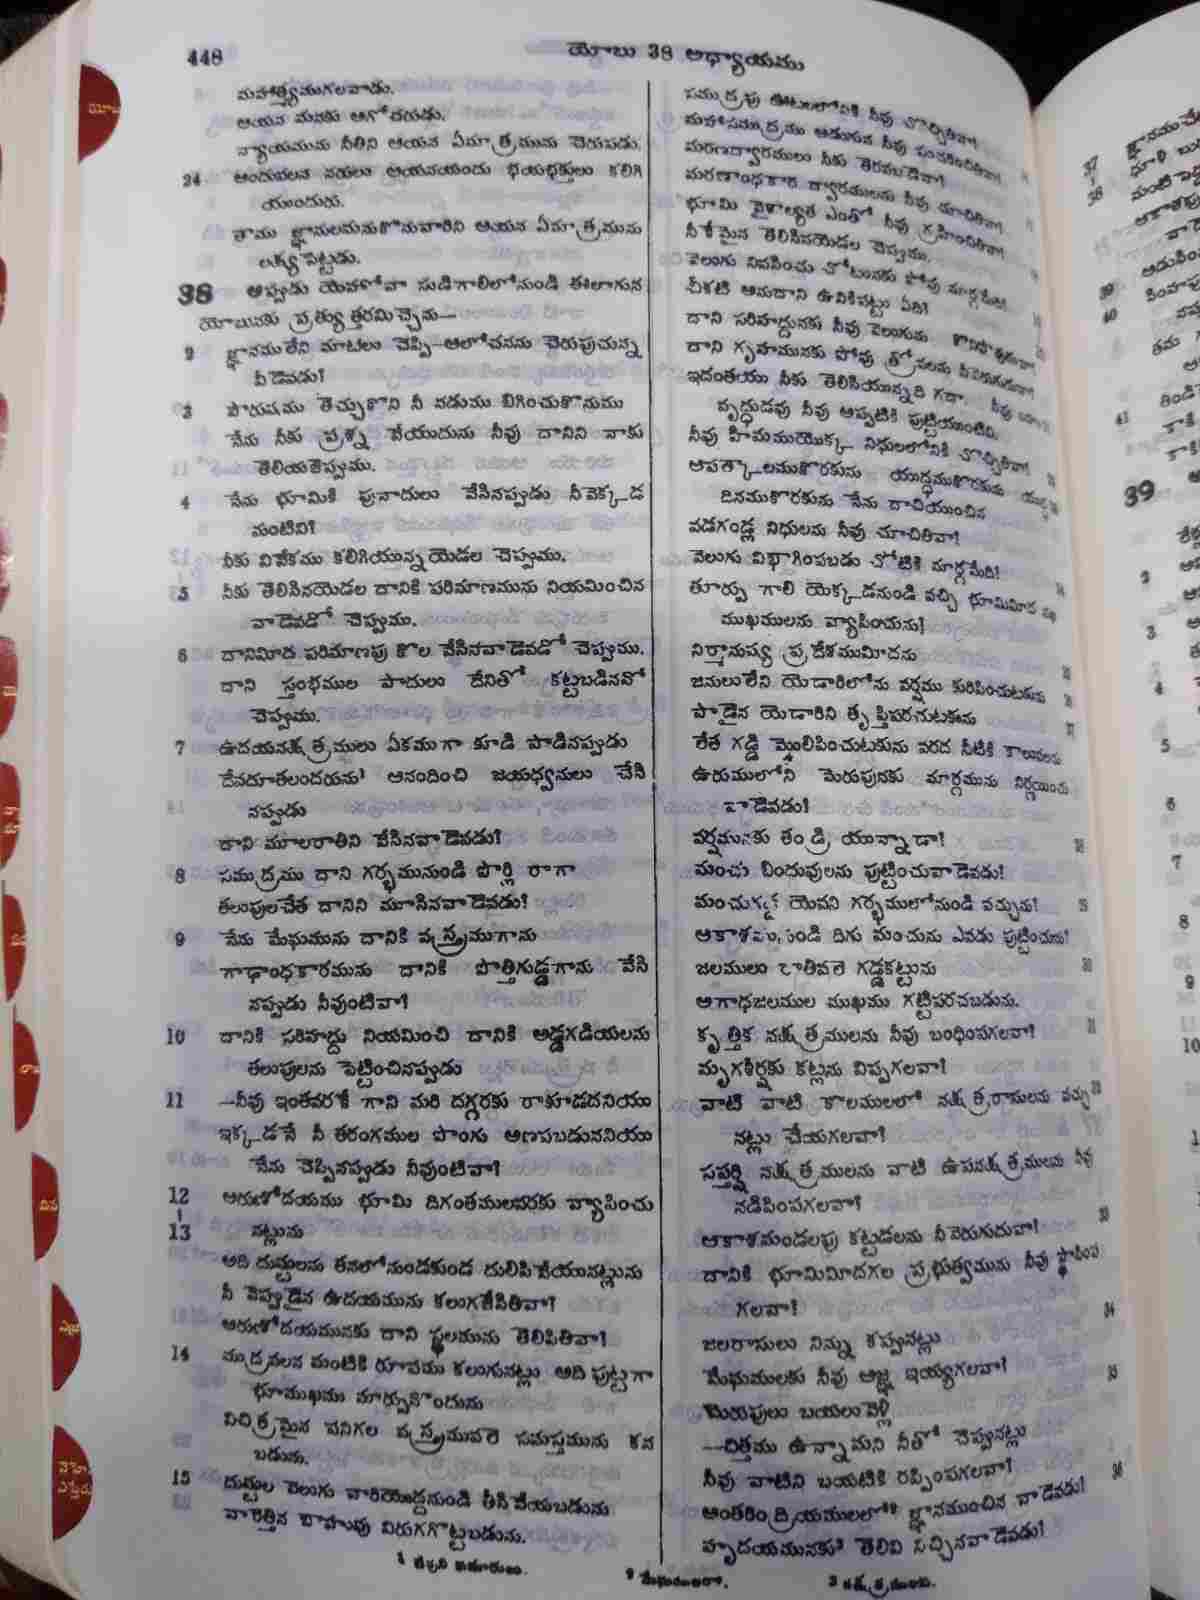 448
యోబు 38 అధ్యాయము
మహాత్త్యముగలవాడు.
ఆయన మనకు అగోచరుడు.
న్యాయమును నీతిని ఆయన ఏమాత్రమును చెరుపడు.
24 అందువలన నరులు ఆయనయందు భయభక్తులు కలిగి
యుందురు.
తాము జ్ఞానులమనుకొనువారిని ఆయన ఏమాత్రమును
లక్ష్యపెట్టడు.
38 అప్పుడు యెహోవా సుడిగాలిలోనుండి ఈలాగున
యోబునకు ప్రత్యుత్తరమిచ్చెను—
2 జ్ఞానములేని మాటలు చెప్పి–ఆలోచనను చెరుపుచున్న
వీడెవడు?
3 పౌరుషము తెచ్చుకొని నీ నడుము బిగించుకొనుము
నేను నీకు ప్రశ్న వేయుదును నీవు దానిని నాకు
తెలియజెప్పుము.
4 నేను భూమికి పునాదులు వేసినప్పుడు నీవెక్కడ
నుంటివి?
నీకు వివేకము కలిగియున్నయెడల చెప్పుము.
5 నీకు తెలిసినయెడల దానికి పరిమాణమును నియమించిన
వాడెవడో చెప్పుము.
6 దానిమీద పరిమాణపు కొల వేసినవాడెవడో చెప్పుము.
దాని స్తంభముల పాదులు దేనితో కట్టబడినవో
చెప్పుము.
7 ఉదయనక్షత్రములు ఏకముగా కూడి పాడినప్పుడు
దేవదూతలందరును¹ ఆనందించి జయధ్వనులు చేసి
నప్పుడు
దాని మూలరాతిని వేసినవాడెవడు?
8 సముద్రము దాని గర్భమునుండి పొర్లి రాగా
తలుపులచేత దానిని మూసినవాడెవడు?
9 నేను మేఘమును దానికి వస్త్రముగాను
గాఢాంధకారమును దానికి పొత్తిగుడ్డగాను వేసి
నప్పుడు నీవుంటివా?
10 దానికి సరిహద్దు నియమించి దానికి అడ్డగడియలను
తలుపులను పెట్టించినప్పుడు
11 —నీవు ఇంతవరకే గాని మరి దగ్గరకు రాకూడదనియు
ఇక్కడనే నీ తరంగముల పొంగు అణపబడుననియు
నేను చెప్పినప్పుడు నీవుంటివా?
12 అరుణోదయము భూమి దిగంతములవరకు వ్యాపించు
13 నట్లును
అది దుష్టులను తనలోనుండకుండ దులిపివేయునట్లును
నీ వెప్పుడైన ఉదయమును కలుగజేసితివా?
అరుణోదయమునకు దాని స్థలమును తెలిపితివా?
14 ముద్రవలన మంటికి రూపము కలుగునట్లు అది పుట్టగా
భూముఖము మార్పునొందును
విచిత్రమైన పనిగల వస్త్రమువలె సమస్తమును కన
బడును.
15 దుష్టుల వెలుగు వారియొద్దనుండి తీసివేయబడును
వారెత్తిన బాహువు విరుగగొట్టబడును.
సముద్రపు ఊటలలోనికి నీవు చొచ్చితివా?
మహాసముద్రము అడుగున నీవు సంచరించితివా?
మరణద్వారములు నీకు తెరవబడెనా?
మరణాంధకార ద్వారములను నీవు చూచితివా?
భూమి వైశాల్యత ఎంతో నీవు గ్రహించితివా?
నీకేమైన తెలిసినయెడల చెప్పుము.
వెలుగు నివసించు చోటునకు పోవు మార్గమేది?
చీకటి అనుదాని ఉనికిపట్టు ఏది?
దాని సరిహద్దునకు నీవు వెలుగును కొనిపోవుదువా?
దాని గృహమునకు పోవు త్రోవలను నీవెరుగుదువా?
ఇదంతయు నీకు తెలిసియున్నది గదా. నీవు బహు
వృద్ధుడవు నీవు అప్పటికి పుట్టియుంటివి.
నీవు హిమముయొక్క నిధులలోనికి చొచ్చితివా?
ఆపత్కాలముకొరకును యుద్ధముకొరకును యుద్ధ
దినముకొరకును నేను దాచియుంచిన
వడగండ్ల నిధులను నీవు చూచితివా?
వెలుగు విభాగింపబడు చోటికి మార్గమేది?
తూర్పు గాలి యెక్కడనుండి వచ్చి భూమిమీద నఖ
ముఖములను వ్యాపించును?
నిర్మానుష్య ప్రదేశముమీదను
జనులులేని యెడారిలోను వర్షము కురిపించుటకును
పాడైన యెడారిని తృప్తిపరచుటకును
లేత గడ్డి మొలిపించుటకును వరద నీటికి కాలువలను
ఉరుములోని మెరుపునకు మార్గమును నిర్ణయించు
వాడెవడు?
వర్షమునకు తండ్రి యున్నాడా?
మంచు బిందువులను పుట్టించువాడెవడు?
మంచుగడ్డ యెవని గర్భములోనుండి వచ్చును?
ఆకాశమునుండి దిగు మంచును ఎవడు పుట్టించును?
జలములు రాతివలె గడ్డకట్టును
అగాధజలముల ముఖము గట్టిపరచబడును.
కృత్తిక నక్షత్రములను నీవు బంధింపగలవా?
మృగశీర్షకు కట్లను విప్పగలవా?
వాటి వాటి కాలములలో నక్షత్రరాసులను వచ్చు
నట్లు చేయగలవా?
సప్తర్షి నక్షత్రములను వాటి ఉపనక్షత్రములను నీవు
నడిపింపగలవా?
ఆకాశమండలపు కట్టడలను నీవెరుగుదువా?
దానికి భూమిమీదగల ప్రభుత్వమును నీవు స్థాపింప
గలవా?
జలరాసులు నిన్ను కప్పునట్లు
మేఘములకు నీవు ఆజ్ఞ ఇయ్యగలవా?
మెరుపులు బయలువెళ్లి
—చిత్తము ఉన్నామని నీతో చెప్పునట్లు
నీవు వాటిని బయటికి రప్పింపగలవా?
అంతరింద్రియములలో² జ్ఞానముంచిన వాడెవడు?
హృదయమునకు³ తెలివి నిచ్చినవాడెవడు?
1 దేవుని కుమారులు.
2 మేఘములలో.
3 నక్షత్రములకు.